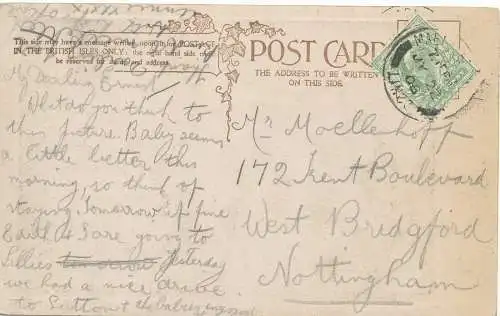 This side may have a message written upon it for POSTAGE
IN THE BRITISH ISLES ONLY; the right hand side to
be reserved for Stamp and address.
POST CARD.
THE ADDRESS TO BE WRITTEN
ON THIS SIDE.
My Darling Ernest
What do you think to
this picture. Baby seems
a little better this
morning, so think of
staying Tomorrow if fine
Edith & I are going to
Lillies Yesterday
we had a nice drive
to Sutton & the babies enjoyed
Mr Moellenhoff
172 Kent Boulevard
West Bridgford
Nottingham